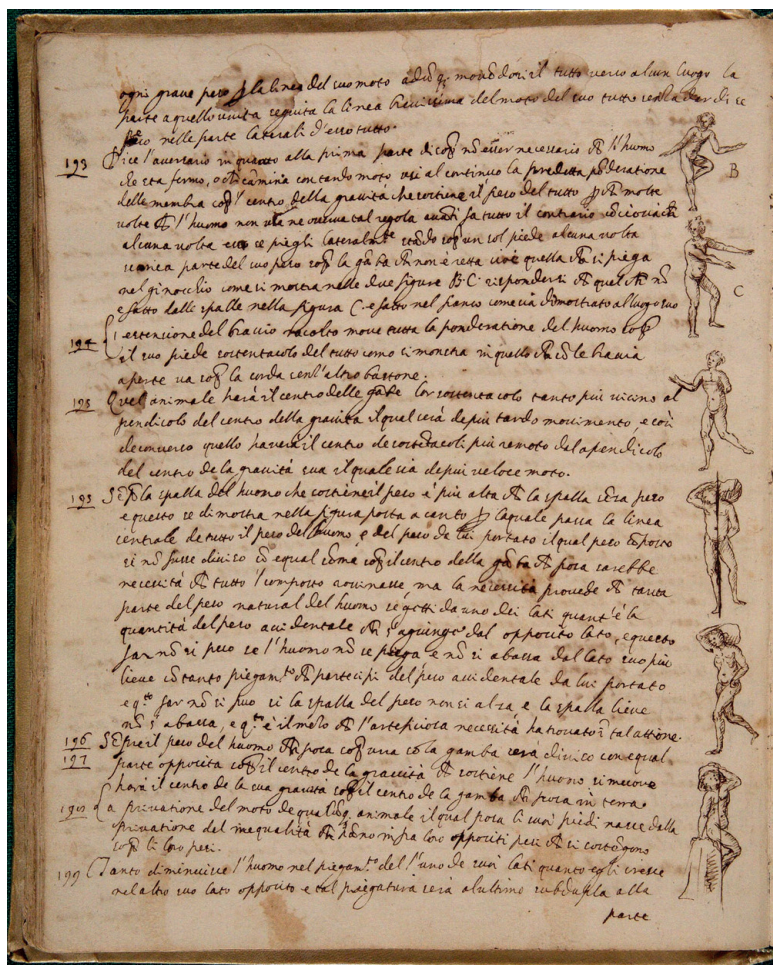 ogni grave pesa p la linea del suo moto adūq; movēdosi il tutto verso alcun luogo la
parte a quello unita seguita la linea brevissima del moto del suo tutto senza dar di se
peso nelle parte laterali d'esso tutto.
193 Dice l'aversario in quanto alla prima parte di non esser necessario l'huomo
che sta fermo, o che camina con tardo moto usi al continuo la predetta ponderatione
delle membra l centro della gravità che sostiene il peso del tutto p molte
volte l'huomo non usa ne osserva tal regola anzi fa tutto il contrario
alcuna volta esso se piegli lateralmte stādo un sol piede alcuna volta
scarica parte del suo peso la gāba non è retta cioè quella si piega
nel ginocchio come si mostra nelle due figure B. C. rispondesi quel nō
e fatto dalle spalle nella figura C. e fatto nel fianco come sia dimostrato al luogo suo
194 L'estensione del braccio racolto move tutta la ponderatione del huomo
il suo piede sostentacolo del tutto como si monstra in quello cō le bracia
aperte va la corda senz'altro bastone.
195 Quel animale harà il centro delle gābe lor sostentacolo tanto piu vicino al
pendicolo del centro della gravità il qual serà de piu tardo movimento, e così
deconverso quello haverà il centro de sostētacoli più remoto dal apendicolo
del centro de la gravità sua il quale sia de piu veloce moto.
195 la spalla del huomo che sostiene il peso è più alta la spalla sēza peso
e questo se dimostra nella figura posta a canto p la quale passa la linea
centrale de tutto il peso del huomo e del peso da lui portato il qual peso cōposto
si nō fusse diviso cō equal sōma il centro della gāba posa sarebbe
necessità tutto l composto rovinasse ma la necessità provede tanta
parte del peso natural del huomo se getti da uno dei lati quant'è la
quantità del peso accidentale s'aguinge dal opposito lato, e questo
far nō si puo se l'huomo nō se piega e nō si abassa dal lato suo più
lieve cō tanto piegamto partecipi del peso accidentale da lui portato
e qto far nō si puo si la spalla del peso non si alza e la spalla lieve
nō s'abassa, e qto è il mezo l'artefitiosa necessità ha trovato ī tal attione.
196 il peso del huomo posa una sola gamba serà diviso con equal
197 parte opposita il centro de la gravità sostiene l'huomo si muove
harà il centro de la sua gravità il centro de la gamba posa in terra
198 La privatione del moto de animale il qual posa li suoi piedi nasce dalla
privatione del inequalità hāno infra loro oppositi pesi si sostēgono
li loro pesi.
199 Tanto diminuisce l'huomo nel piegamto del uno de suoi lati quanto egli cresce
nel altro suo lato opposito e tal piegatura serà al ultimo subdupla alla
parte
B
C